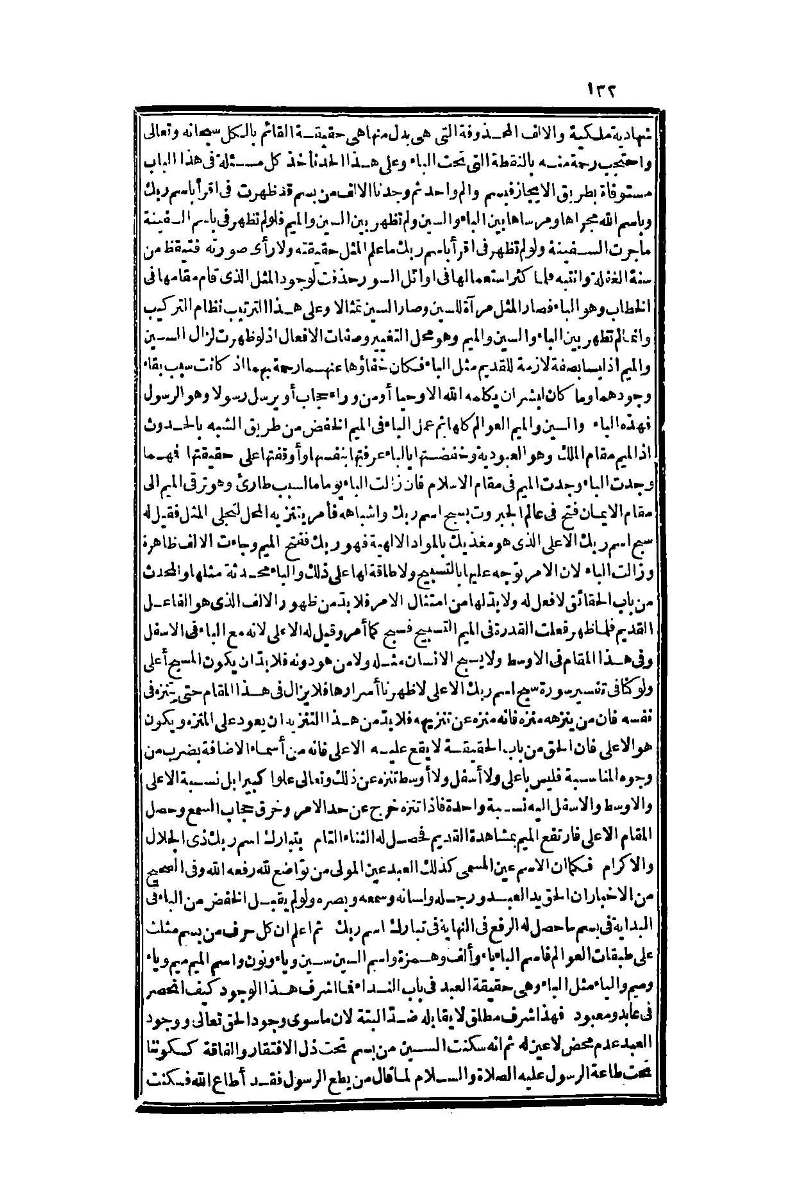 ١٣٢
شهادية ملكية والالف المحذوفة التى هى بدل منها هى حقيقة القائم بالكل سبحانه وتعالى
واحتجب رحمة منه بالنقطة التى تحت الباء وعلى هذا الحد تأخذ كل مسئلة فى هذا الباب
مستوفاة بطريق الايجاز فبسم والم واحد ثم وجدنا الالف من بسم قد ظهرت فى اقرأ باسم ربك
وباسم الله مجراها ومرساها بين الباء والسين ولم تظهر بين السين والميم فلو لم تظهر فى باسم السفينة
ما جرت السفينة ولو لم تظهر فى اقرأ باسم ربك ما علم المثل حقيقته ولا رأى صورته فتيقظ من
سنة الغفلة وانتبه فلما كثر استعمالها فى اوائل السور حذفت لوجود المثل الذى قام مقامها فى
الخطاب وهو الباء فصار المثل مرآة للسين وصار السين مثالا وعلى هذا الترتيب نظام التركيب
وانما لم تظهر بين الباء والسين والميم وهو محل التغيير وصفات الافعال اذ لو ظهرت لزال السين
والميم اذ ليسا بصفة لازمة للقديم مثل الباء فكان خفاؤها عنهم رحمة بهم اذ كانت سبب بقاء
وجودهما وما كان لبشر ان يكلمه الله الا وحيا أو من وراء حجاب أو يرسل رسولا وهو الرسول
فهذه الباء والسين والميم العوالم كلها ثم عمل الباء فى الميم الخفض من طريق الشبه بالحدوث
اذ الميم مقام الملك وهو العبودية وخفضتها الباء عرفتها بنفسها وأوقفتها على حقيقتها فهما
وجدت الباء وجدت الميم فى مقام الاسلام فان زالت الباء يوما ما لسبب طارئ وهو ترقى الميم الى
مقام الايمان فتح فى عالم الجبروت بسبح اسم ربك واشباهه فأمر بتنزيه المحل لتجلى المثل فقيل له
سبح اسم ربك الاعلى الذى هو مغذيك بالمواد الالهية فهو ربك ففتح الميم وجاءت الالف ظاهرة
وزالت الباء لان الامر توجه عليها بالتسبيح ولا طاقة لها على ذلك والباء محدثة مثلها والمحدث
من باب الحقائق لا فعل له ولا بد لها من امتثال الامر فلا بد من ظهور الالف الذى هو الفاعل
القديم فلما ظهر فعلت القدرة فى الميم التسبيح فسبح كما أمر وقيل له الاعلى لانه مع الباء فى الاسفل
وفى هذا المقام فى الاوسط ولا يسبح الانسان مثله ولا من هو دونه فلا بد ان يكون المسبح أعلى
ولو كنا فى تفسير سورة سبح اسم ربك الاعلى لاظهرنا أسرارها فلا يزال فى هذا المقام حتى يتنزه فى
نفسه فان من ينزهه منزه فانه منزه عن تنزيهه فلا بد من هذا التنزيه ان يعود على المنزه ويكون
هو الاعلى فان الحق من باب الحقيقة لا يقع عليه الاعلى فانه من أسماء الاضافة بضرب من
وجوه المناسبة فليس باعلى ولا أسفل ولا أوسط تنزه عن ذلك وتعالى علوا كبيرا بل نسبة الاعلى
والاوسط والاسفل اليه نسبة واحدة فاذا تنزه خرج عن حد الامر وخرق حجاب السمع وحصل
المقام الاعلى فارتفع الميم بمشاهدة القديم فحصل له الثناء التام بتبارك اسم ربك ذى الجلال
والاكرام فكما ان الاسم عين المسمى كذلك العبد عين المولى من تواضع لله رفعه الله وفى الصحيح
من الاخبار ان الحق يد العبد ورجله ولسانه وسمعه وبصره ولو لم يقبل الخفض من الباء فى
البداية فى بسم ما حصل له الرفع فى النهاية فى تبارك اسم ربك ثم اعلم ان كل حرف من بسم مثلث
على طبقات العوالم فاسم الباء باء وألف وهمزة واسم السين سين وياء ونون واسم الميم ميم وياء
وميم والياء مثل الباء وهى حقيقة العبد فى باب النداء فما اشرف هذا الوجود كيف انحصر
فى عابد ومعبود فهذا شرف مطلق لا يقابله ضد البتة لان ما سوى وجود الحق تعالى ووجود
العبد عدم محض لا عين له ثم انه سكنت السين من بسم تحت ذل الافتقار والفاقة كسكوننا
تحت طاعة الرسول عليه الصلاة والسلام لما قال من يطع الرسول فقد أطاع الله فسكنت